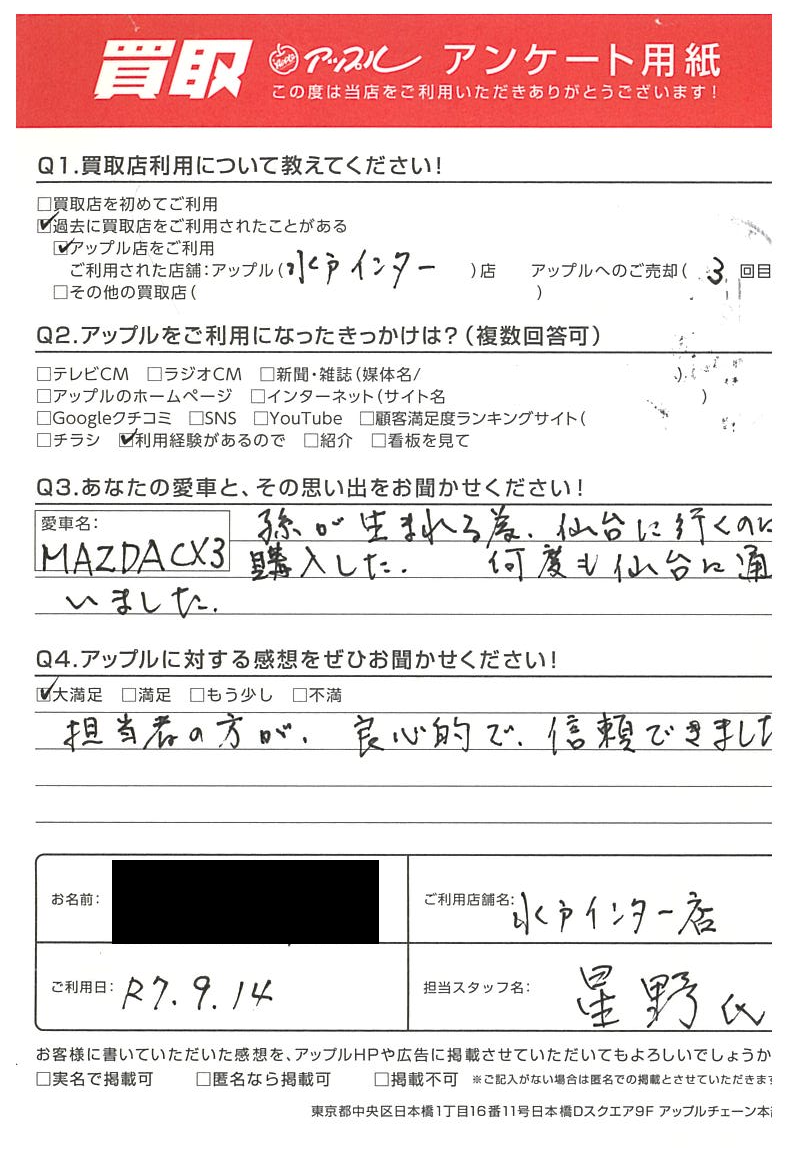 買取 アップル アンケート用紙
この度は当店をご利用いただきありがとうございます!
Q1.買取店利用について教えてください!
□買取店を初めてご利用
☑過去に買取店をご利用されたことがある
☑アップル店をご利用
ご利用された店舗:アップル(水戸インター )店 アップルへのご売却( 3 回目
□その他の買取店( )
Q2.アップルをご利用になったきっかけは?(複数回答可)
□テレビCM □ラジオCM □新聞・雑誌(媒体名/ )
□アップルのホームページ □インターネット(サイト名 )
□Googleクチコミ □SNS □YouTube □顧客満足度ランキングサイト(
□チラシ ☑利用経験があるので □紹介 □看板を見て
Q3.あなたの愛車と、その思い出をお聞かせください!
愛車名: 孫が生まれる為、仙台に行くのに
MAZDA CX3 購入した. 何度も仙台に通
いました.
Q4.アップルに対する感想をぜひお聞かせください!
☑大満足 □満足 □もう少し □不満
担当者の方が、良心的で、信頼できました
お名前: ご利用店舗名: 水戸インター店
ご利用日: R7.9.14 担当スタッフ名: 星野氏
お客様に書いていただいた感想を、アップルHPや広告に掲載させていただいてもよろしいでしょうか
□実名で掲載可 □匿名なら掲載可 □掲載不可 ※ご記入がない場合は匿名での掲載とさせていただきます
東京都中央区日本橋1丁目16番11号日本橋Dスクエア9F アップルチェーン本